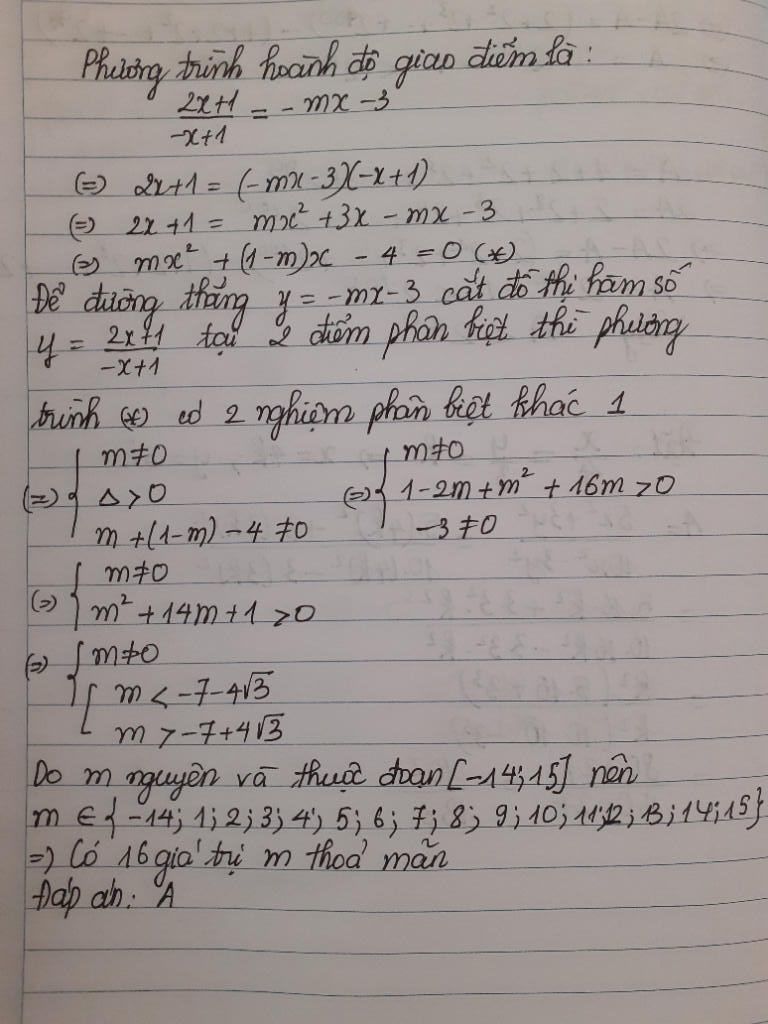 Phương trình hoành độ giao điểm là:
2x+1/-x+1 = -mx-3
(=) 2x+1 = (-mx-3)(-x+1)
(=) 2x+1 = mx² +3x - mx - 3
(=) mx² + (1-m)x - 4 = 0 (*)
Để đường thẳng y = -mx-3 cắt đồ thị hàm số
y = 2x+1/-x+1 tại 2 điểm phân biệt thì phương
trình (*) có 2 nghiệm phân biệt khác 1
(=) { m≠0 (=) { m≠0
Δ>0 1-2m+m² + 16m >0
m+(1-m)-4 ≠0 -3≠0
(=) { m≠0
m² +14m+1 >0
(=) { m≠0
[ m < -7-4√3
m > -7+4√3
Do m nguyên và thuộc đoạn [-14;15] nên
m ∈ {-14; 1; 2; 3; 4; 5; 6; 7; 8; 9; 10; 11; 12; 13; 14; 15}
=) Có 16 giá trị m thoả mãn
Đáp án: A